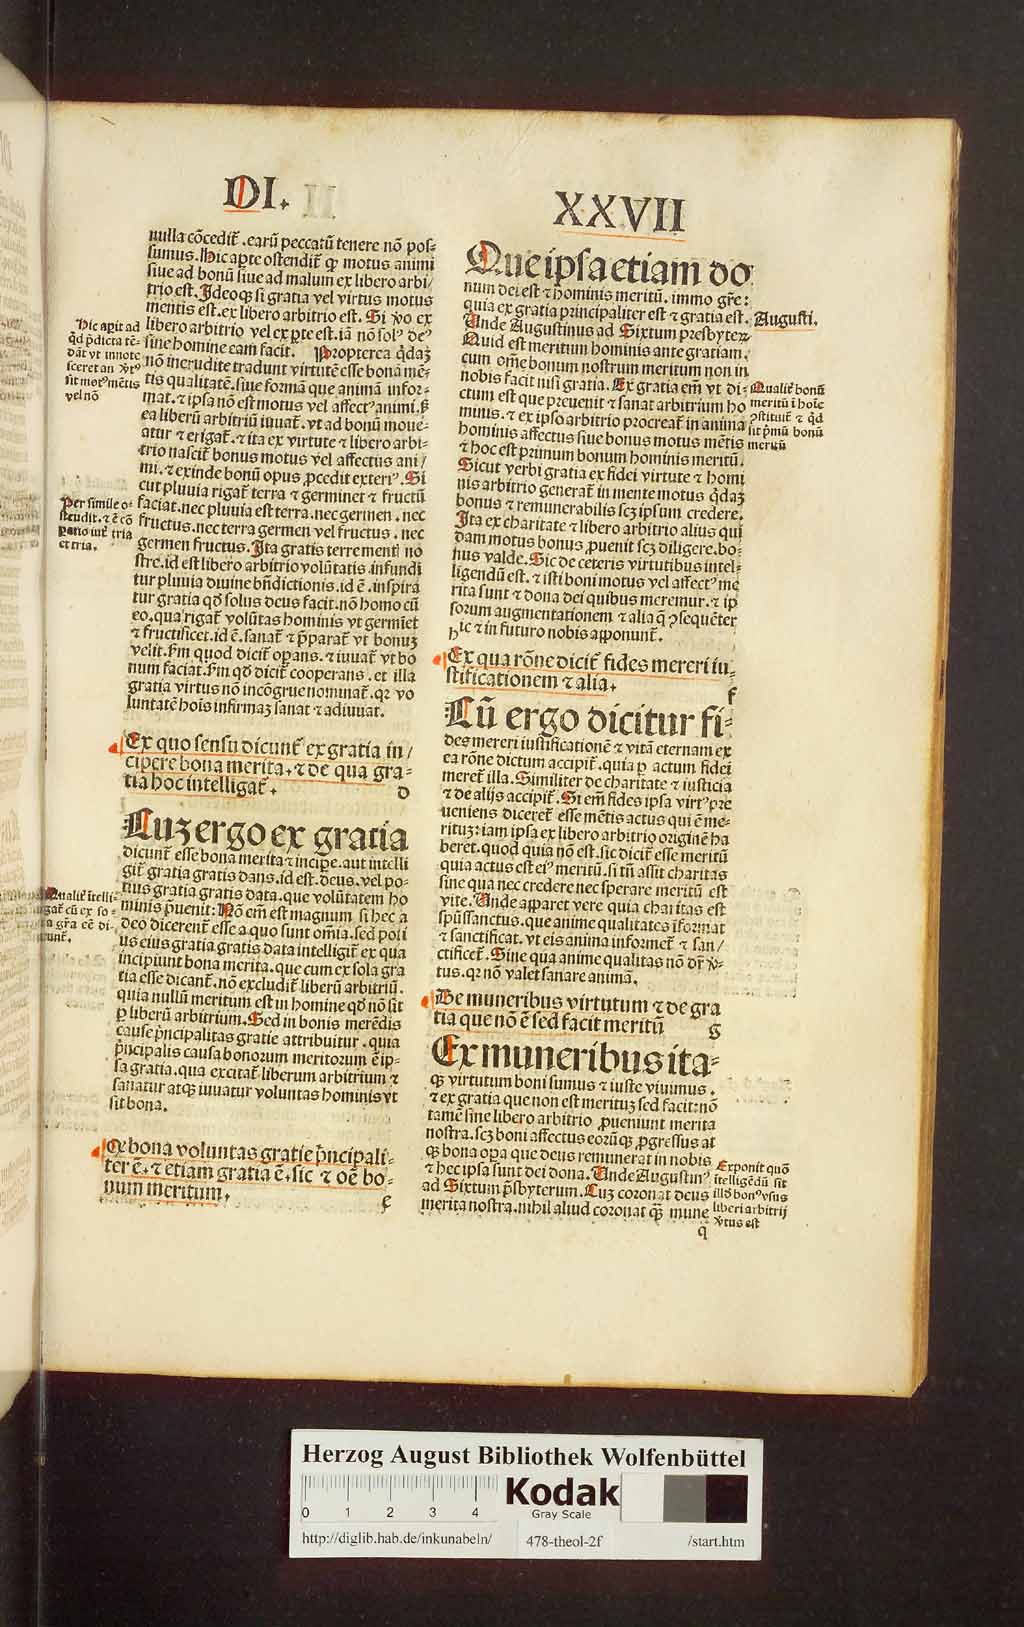 DI.
XXVII
nulla cōcedit̄ .earū peccatū tenere nō pos-
sumus. Hic apte ostendit̄ ꝙ motus animi
siue ad bonū siue ad malum ex libero arbi/
trio est. Ideoqꝫ si gratia vel virtus motus
mentis est. ex libero arbitrio est. Si v̄o ex
libero arbitrio vel ex ꝑte est. iā nō solꝰ deꝰ
sine homine eam facit. Propterea q̄daꝫ
nō inerudite tradunt virtutē esse bonā mē-
tis qualitatē. siue formā que animā infor-
mat. ⁊ ipsa nō est motus vel affectꝰ animi. ß
ea liberū arbitriū iuuat̄. vt ad bonū moue-
atur ⁊ erigat̄. ⁊ ita ex virtute ⁊ libero arbi-
trio nascit̄ bonus motus vel affectus ani/
mi. ⁊ exinde bonū opus ꝓcedit exteriꝰ. Si
cut pluuia rigat̄ terra ⁊ germinet ⁊ fructū
faciat. nec pluuia est terra. nec germen. nec
fructus. nec terra germen vel fructus. nec
germen fructus. Ita gratis terre menti nō
stre. id est libero arbitrio volūtatis infundi
tur pluuia diuine bn̄dictionis. id ē. inspira
tur gratia qḋ solus deus facit. nō homo cū
eo. qua rigat̄ volūtas hominis vt germīet
⁊ fructificet. id ē. sanat̄ ⁊ p̄parat̄ vt bonuꝫ
velit. ßm quod dicit̄ oꝑans. ⁊ iuuat̄ vt bo
num faciat. ßm qḋ dicit̄ cooperans. et illa
gratia virtus nō incōgrue nominat̄. qꝛ vo
luntatē hoīs infirmaꝫ sanat ⁊ adiuuat.
Ex quo sensu dicunt̄ ex gratia in/
cipere bona merita. ⁊ de qua gra-
tia hoc intelligat̄.
D
Cuꝫ ergo ex gratia
dicunt̄ esse bona merita ⁊ incipe. aut intelli
git̄ gratia gratis dans. id est. deus. vel po-
tius gratia gratis data. que volūtatem ho
minis p̄uenit: Nō em̄ est magnum si hec a
deo dicerent̄ esse a quo sunt om̄ia. sed poti
us eius gratia gratis data intelligit̄ ex qua
incipiunt bona merita. que cum ex sola gra
tia esse dicant̄. nō excludit̄ liberū arbitriū.
quia nullū meritum est in homine qḋ nō sit
ꝑ liberū arbitrium. Sed in bonis merēdis
cause p̄ncipalitas gratie attribuitur. quia
p̄ncipalis causa bonorum meritorum ē ip-
sa gratia. qua excitat̄ liberum arbitrium ⁊
sanatur atqꝫ iuuatur voluntas hominis vt
sit bona.
Qꝙ bona voluntas gratie p̄ncipali-
ter ē. ⁊ etiam gratia ē. sic ⁊ oē bo-
num meritum.
E
Hic aꝑit ad
qḋ p̄dicta tē-
dāt vt innote
sceret an v̄tꝰ
sit motꝰ mētis
vel nō
Per simile o-
stendit. ⁊ ē cō
ꝑatio int̄ tria
et tria.
Qualit̄ ītelli-
gat̄ cū ex so-
a gr̄a eē di-
cunt̄.
Que ipsa etiam do
num dei est ⁊ hominis meritū. immo gr̄e:
quia ex gratia principaliter est ⁊ gratia est.
Unde Augustinus ad Sixtum presbyteꝝ
Quid est meritum hominis ante gratiam.
cum om̄e bonum nostrum meritum non in
nobis facit nisi gratia. Ex gratia em̄ vt di-
ctum est que preuenit ⁊ sanat arbitrium ho
minis. ⁊ ex ipso arbitrio procreat̄ in anima
hominis affectus siue bonus motus mētis
⁊ hoc est primum bonum hominis meritū.
Sicut verbi gratia ex fidei virtute ⁊ homi
nis arbitrio generat̄ in mente motus q̄daꝫ
bonus ⁊ remunerabilis scꝫ ipsum credere.
Ita ex charitate ⁊ libero arbitrio alius qui
dam motus bonus ꝓuenit scꝫ diligere. bo-
nus valde. Sic de ceteris virtutibus intel-
ligendū est. ⁊ isti boni motus vel affectꝰ me
rita sunt ⁊ dona dei quibus meremur. ⁊ ip
sorum augmentationem ⁊ alia q̄ ꝯsequēter
hic ⁊ in futuro nobis apponunt̄.
Ex qua rōne dicit̄ fides mereri iu-
stificationem ⁊ alia.
F
Cū ergo dicitur fi-
des mereri iustificationē ⁊ vitā eternam ex
ea rōne dictum accipit̄. quia ꝑ actum fidei
meret̄ illa. Similiter de charitate ⁊ iusticia
⁊ de alijs accipit̄. Si em̄ fides ipsa virtꝰ pre
ueniens diceret̄ esse mētis actus qui ē me-
rituꝫ: iam ipsa ex libero arbitrio originē ha
beret. quod quia nō est. sic dicit̄ esse meritū
quia actus est eiꝰ meritū. si tn̄ assit charitas
sine qua nec credere nec sperare meritū est
vite. Unde apparet vere quia charitas est
spūssanctus. que anime qualitates īformat
⁊ sanctificat. vt eis anima informet̄ ⁊ san/
ctificet̄. Sine qua anime qualitas nō dr̄ v̄-
tus. qꝛ nō valet sanare animā.
De muneribus virtutum ⁊ de gra
tia que nō ē sed facit meritū
G
Ex muneribus ita-
qꝫ virtutum boni sumus ⁊ iuste viuimus.
⁊ ex gratia que non est merituꝫ sed facit: nō
tamē sine libero arbitrio ꝓueniunt merita
nostra. scꝫ boni affectus eorūqꝫ ꝓgressus at
qꝫ bona oꝑa que deus remunerat in nobis
⁊ hec ipsa sunt dei dona. Unde Augustinꝰ
ad Sixtum p̄sbyterum. Cuꝫ coronat deus
merita nostra. nihil aliud coronat qꝫ mune
q
Augusti.
Qualit̄ bonū
meritū ī hoīe
ꝯstituit̄ ⁊ qḋ
sit pꝛmū bonū
meritū
Exponit quō
ītelligēdū sit
illḋ bonꝰ vsus
liberi arbitrij
v̄tus est
Herzog August Bibliothek Wolfenbüttel
0 1 2 3 4
Kodak
Gray Scale
http://diglib.hab.de/inkunabeln/ 478-theol-2f /start.htm